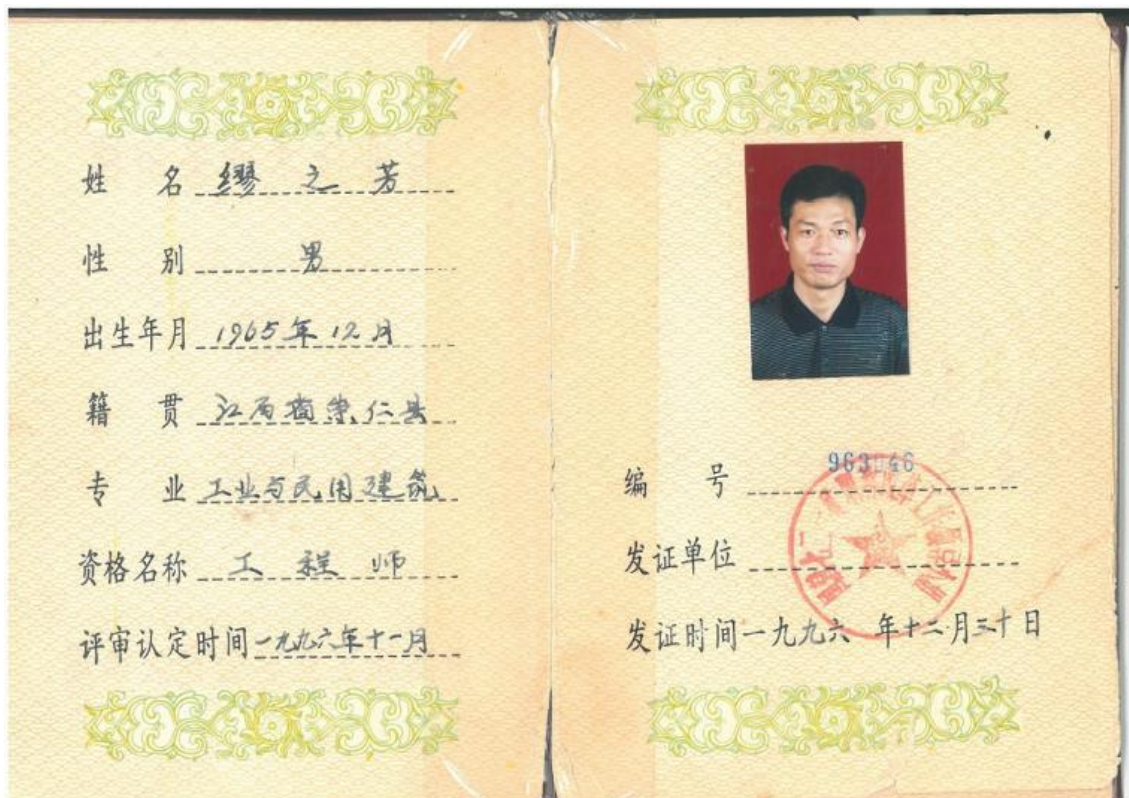 姓名 缪之芳
性别 男
出生年月 1965年12月
籍贯 江西省崇仁县
专业 工业与民用建筑
资格名称 工程师
评审认定时间 一九九六年十一月
编号
发证单位
发证时间 一九九六年十二月三十日